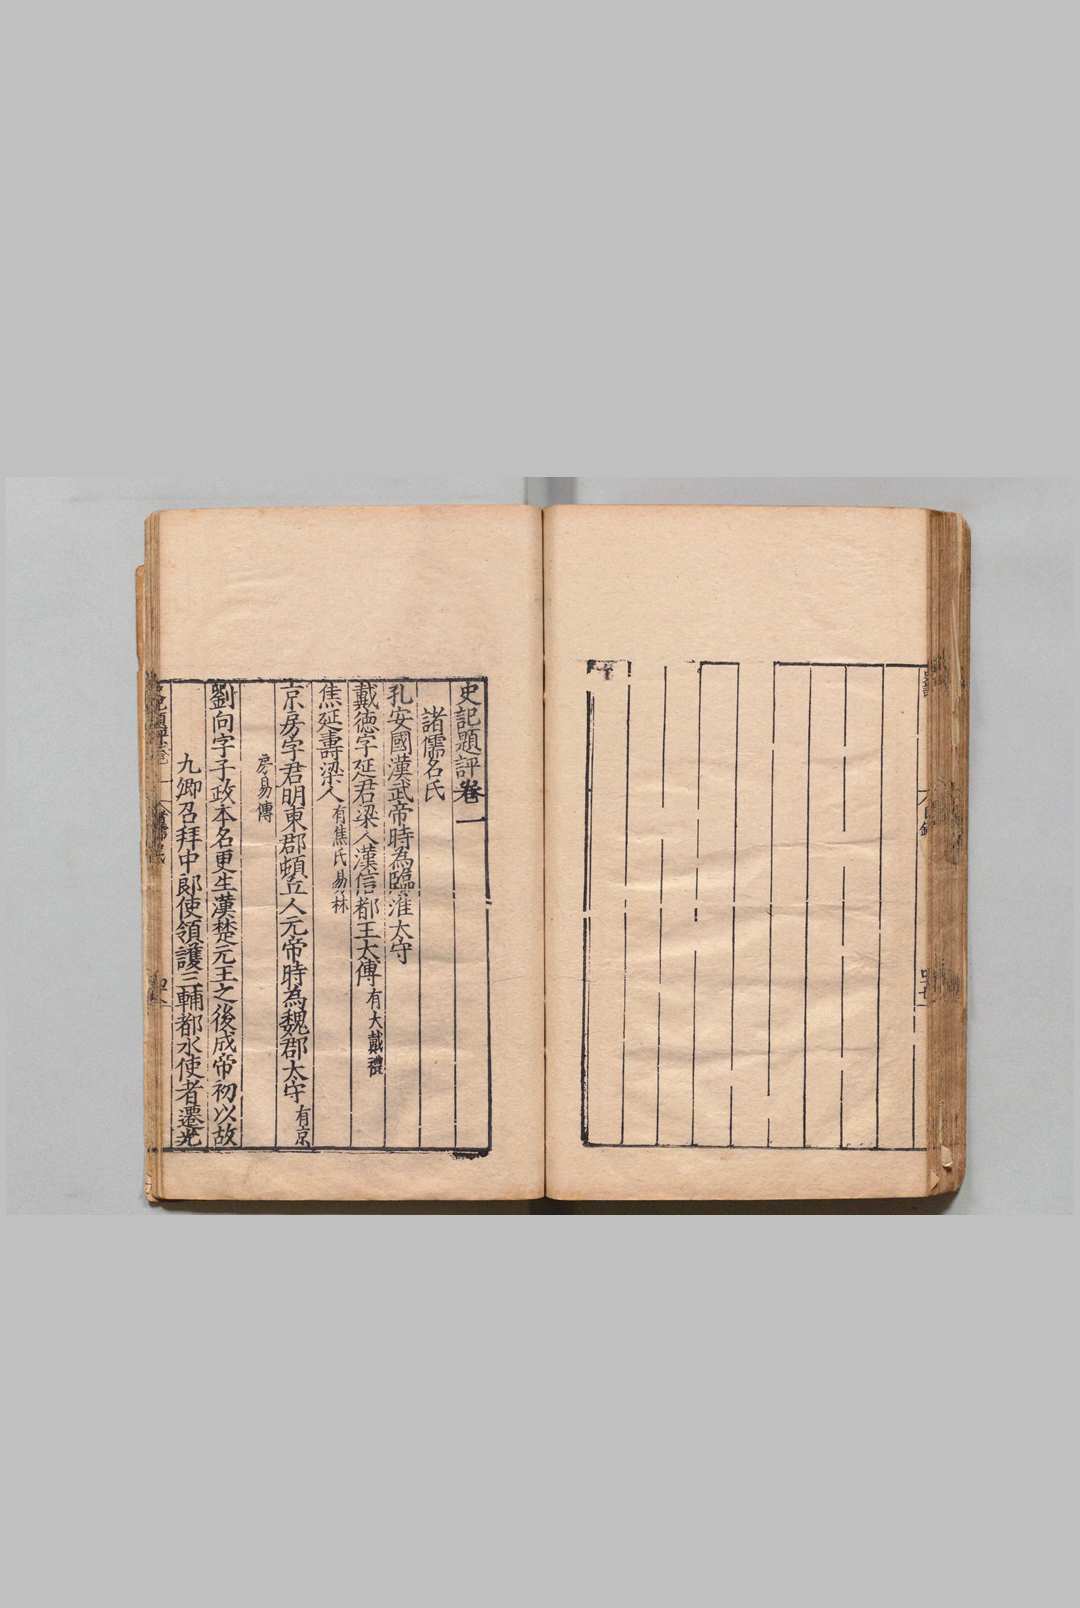 史記題評卷一
諸儒名氏
孔安國漢武帝時為臨淮太守
戴德字延君梁人漢信都王太傅有大戴禮
焦延壽梁人有焦氏易林
京房字君明東郡頓丘人元帝時為魏郡太守有京
房易傳
劉向字子政本名更生漢楚元王之後成帝初以故
九卿召拜中郎使領護三輔都水使者遷光